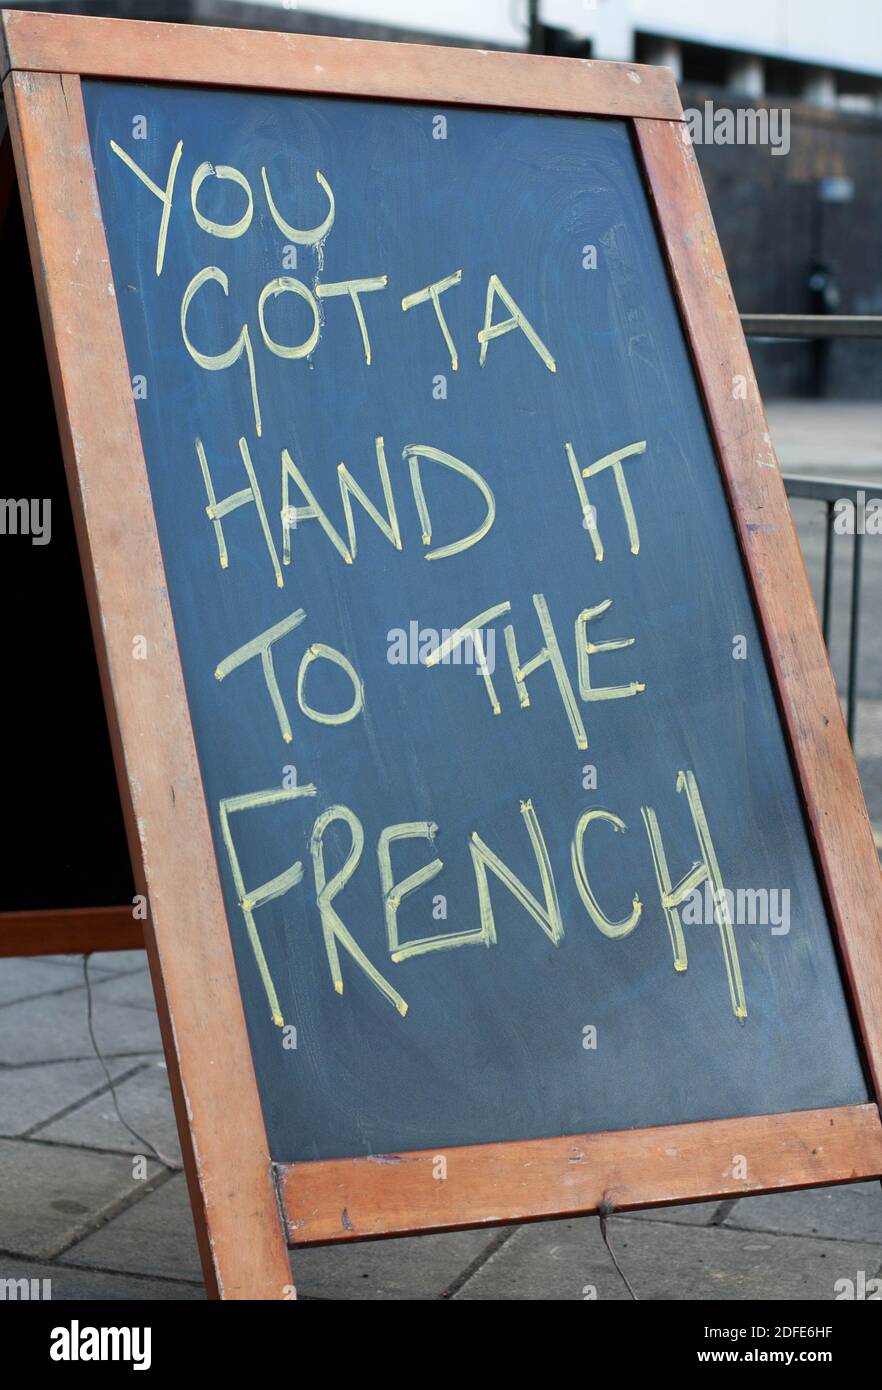 YOU
GOTTA
HAND IT
TO THE
FRENCH
alamy
alamy
Image ID: 2DFE6HF
www.alamy.com